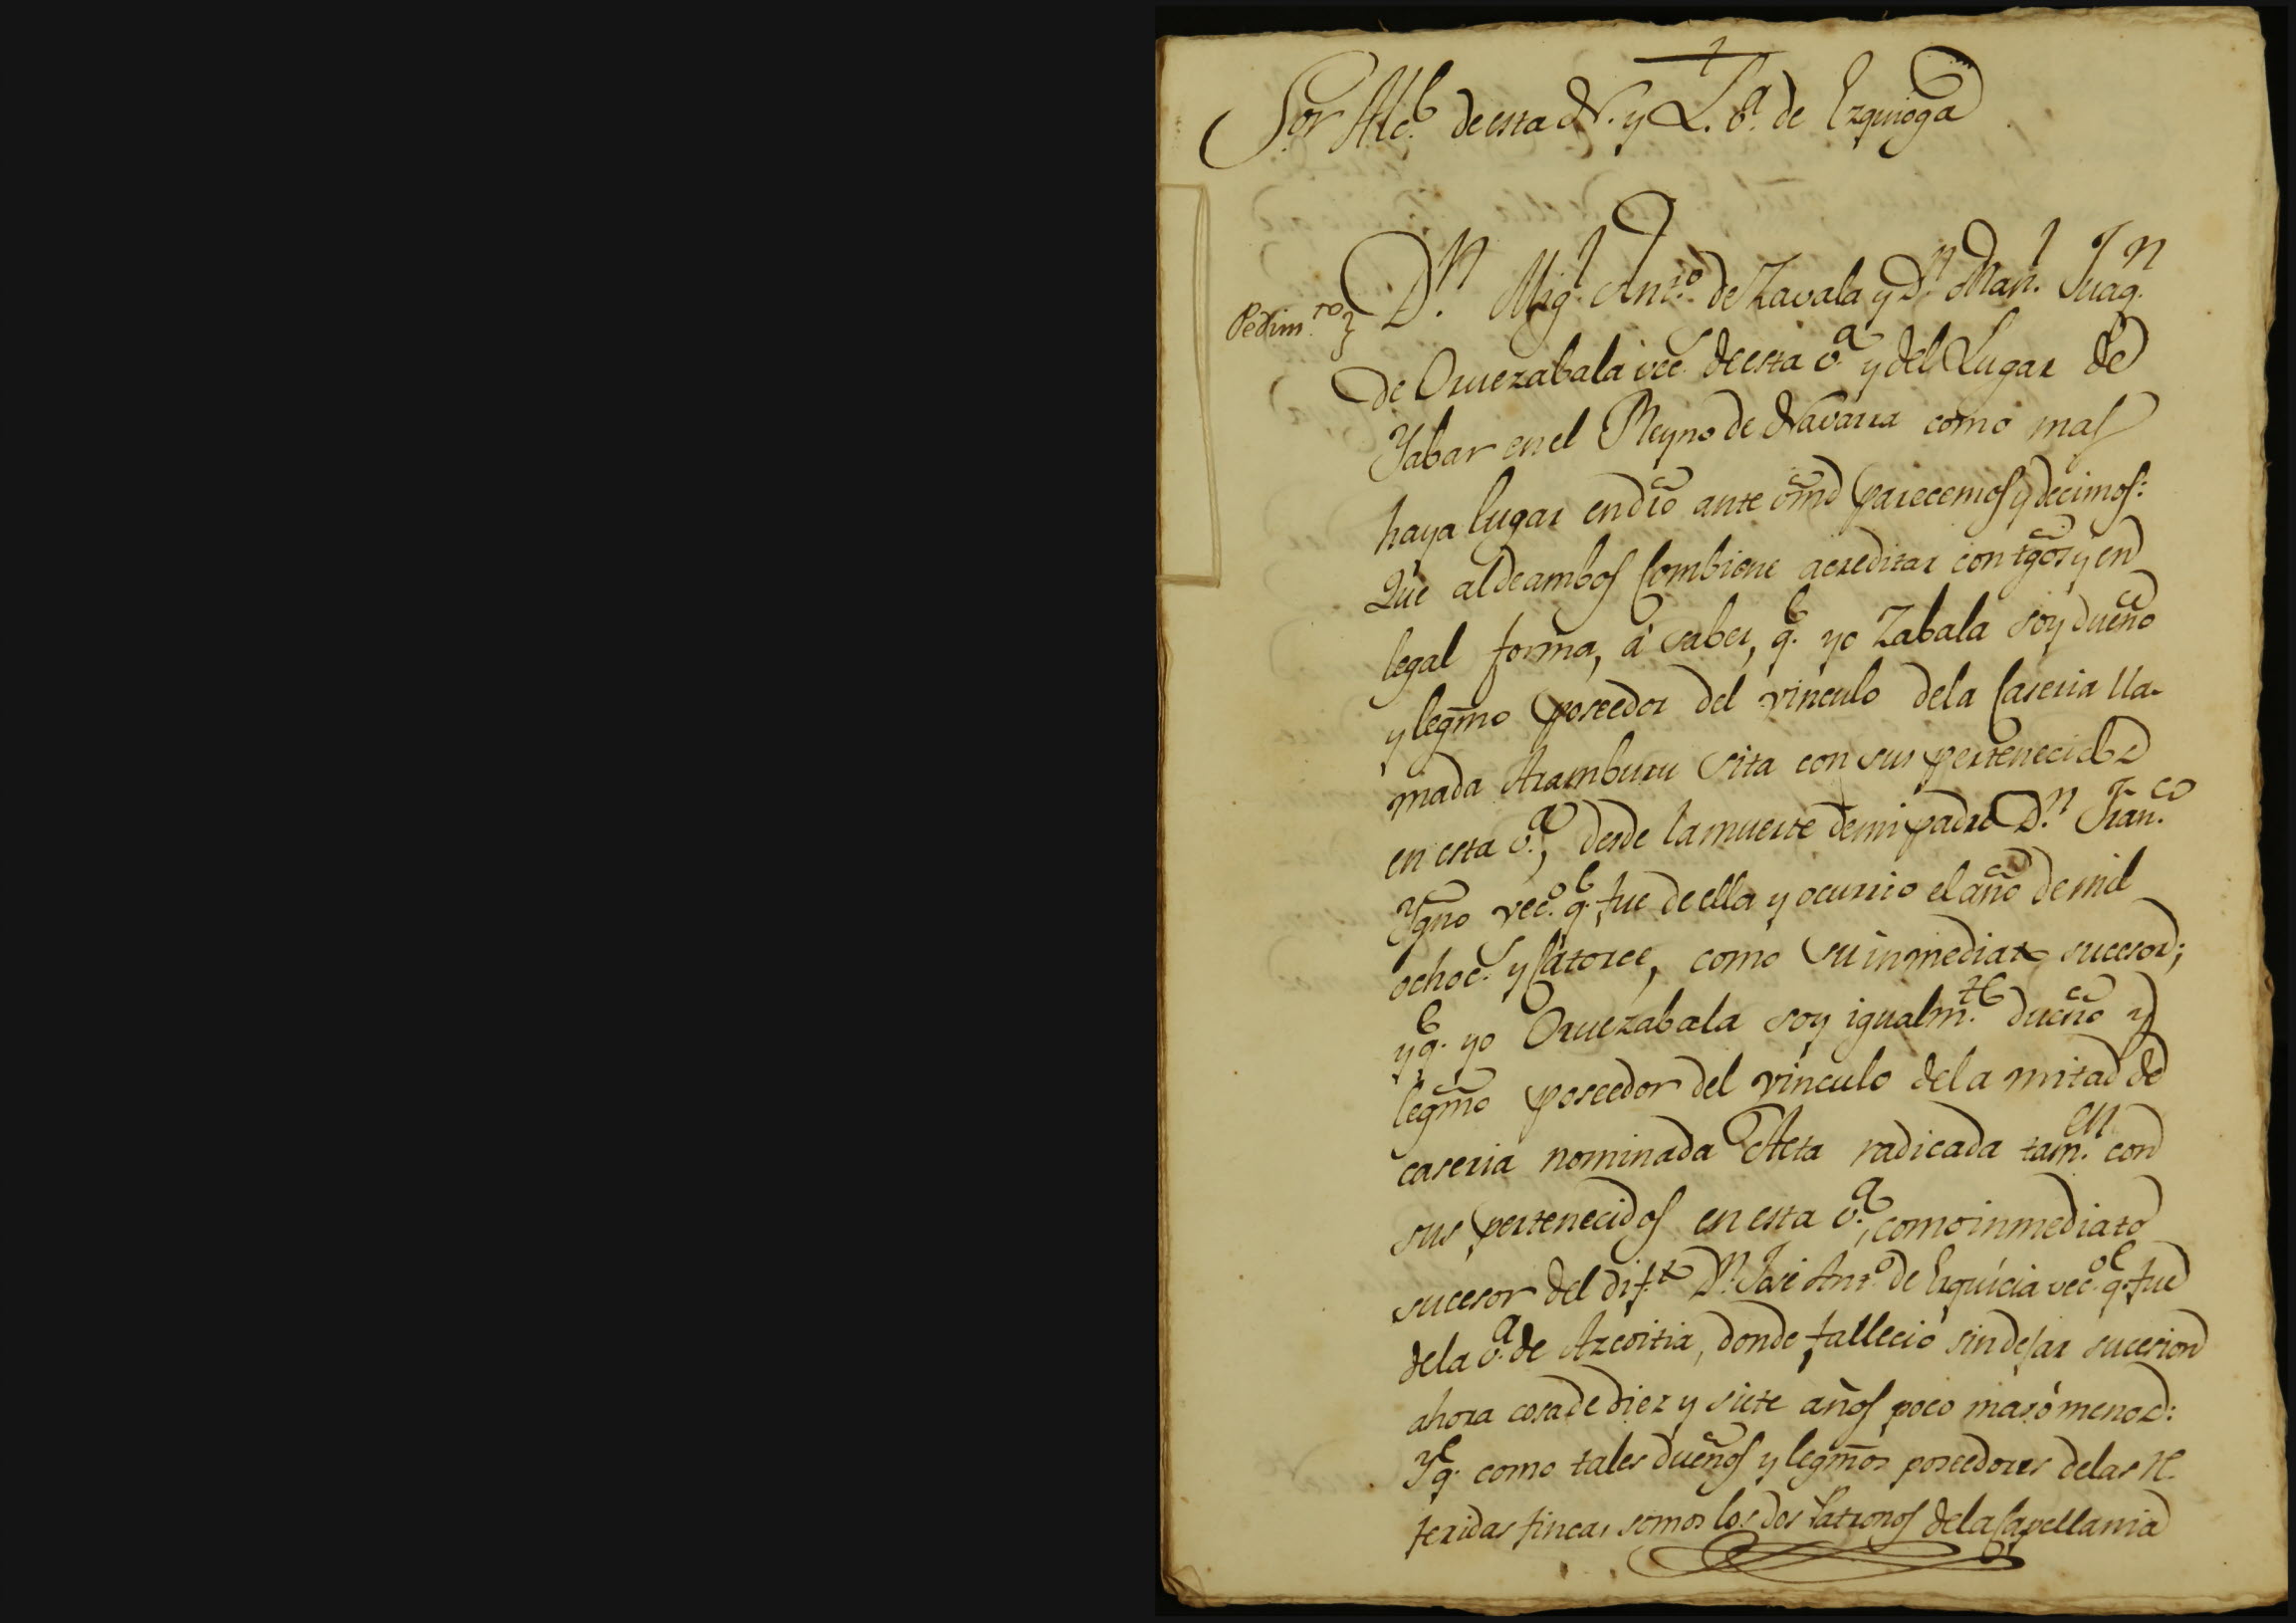 Sor Alc.e de esta N. y L. v.a de Ezquioga
Pedim.to
D.n Mig.l Ant.o de Zavala y D.n Man.l Juaq.n
de Oruezabala vec.s de esta v.a y del Lugar de
Yabar en el Reyno de Navarra como mas
haya lugar en dro ante vmd parecemos y decimos:
Que al de ambos combiene acreditar con tgos y en
legal forma, á saber, q.e yo Zabala soy dueño
y legmo poseedor del vinculo dela Caseria lla-
mada Aramburu sita con sus pertenecidos
en esta v.a, desde la muerte de mi padre D.n Fran.co
Ygno vec.o q.e fue de ella y ocurrio el año de mil
ochoc.s y Catorce, como su inmediato sucesor;
y q.e yo Oruezabala soy igualm.te dueño y
legmo poseedor del vinculo dela mitad de
caseria nominada Aeta radicada tam.en con
sus pertenecidos en esta v.a, como inmediato
sucesor del dif.to D.n José Ant.o de Ezquicia vec.o q.e fue
dela v.a de Azcoitia, donde fallecio sin dejar sucesion
ahora cosa de diez y siete años poco mas ó menos:
Y q.e como tales dueños y legmos poseedores delas re-
feridas fincas somos los dos Patronos dela Capellania